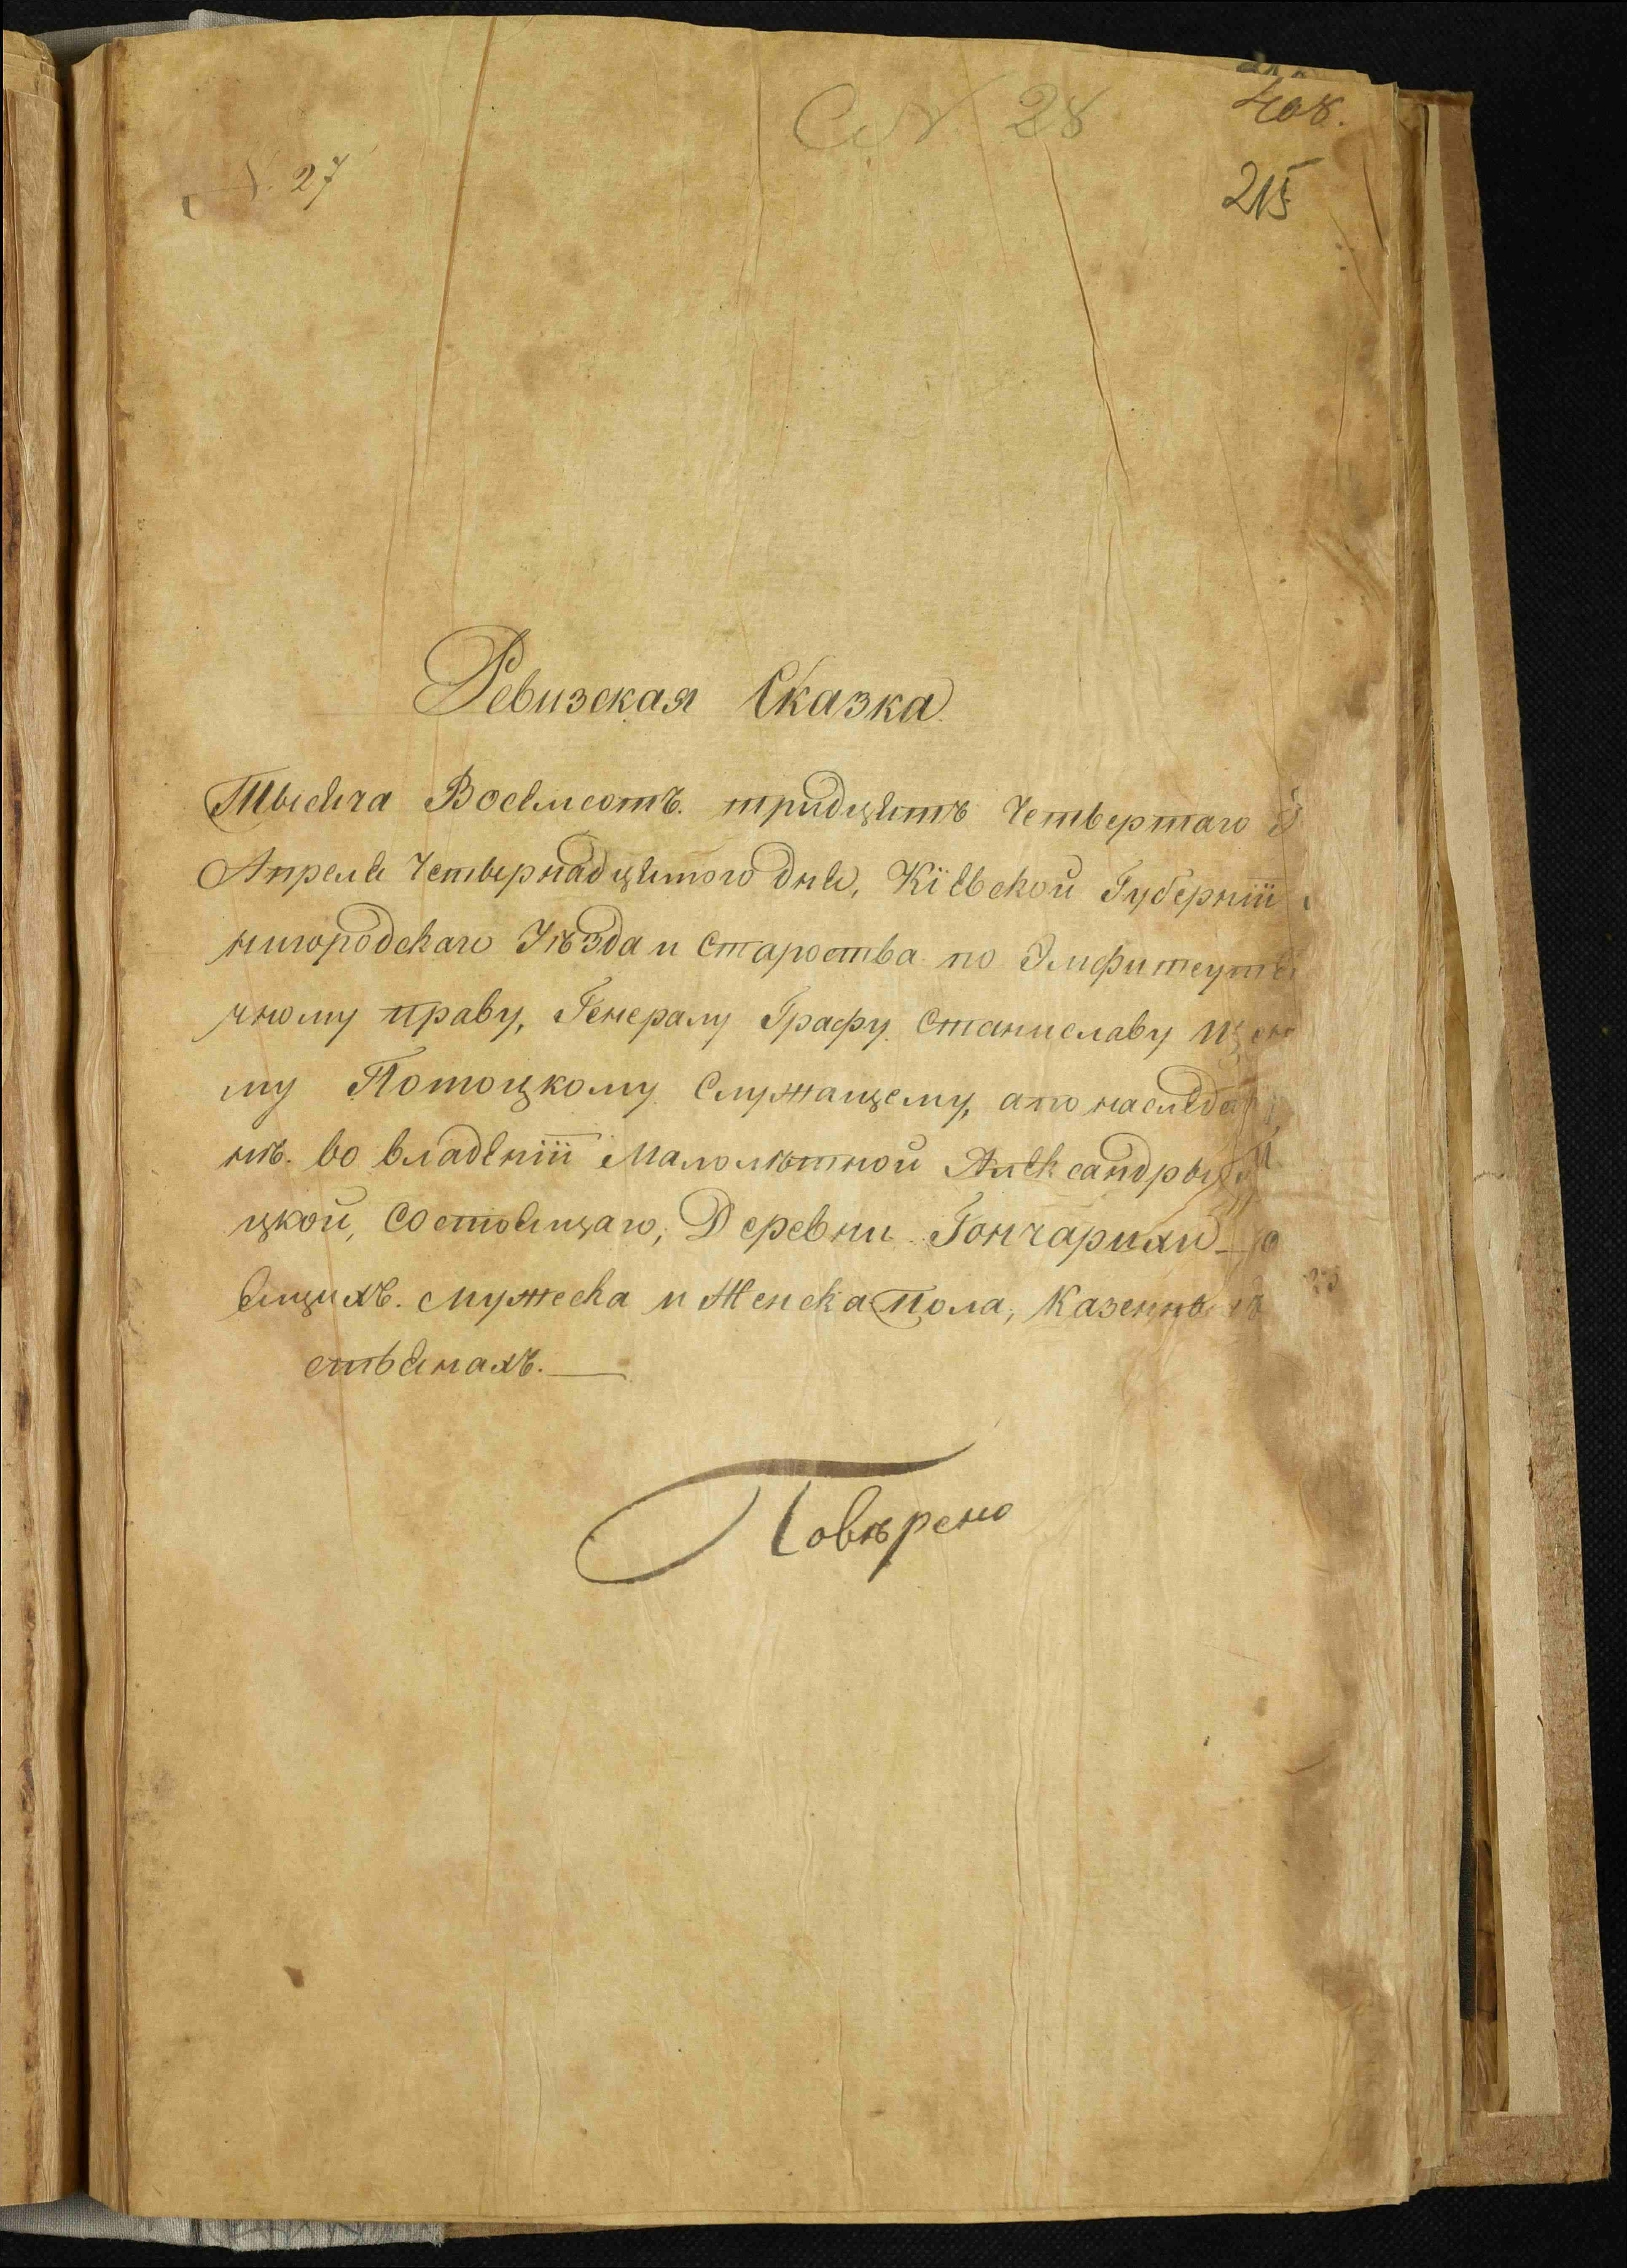 408.
N. 27
28
215
Ревизская Сказка
Тысяча Восемсотъ тридцять Четвертаго
Апреля Четвернадцятого дня, Кіевской Губерніи
нигородскаго Уѣзда и Староства по Эмфитеути
чному праву, Генералу Графу Станиславу
му Потоцкому Служащему, а по наслед
нѣ. во владеніи Малолѣтной Александры
цкой, Состоящаго, Деревни Гончарихи
ящихъ. мужеска и Женска пола, Казенны
стьянахъ.
Повѣрено